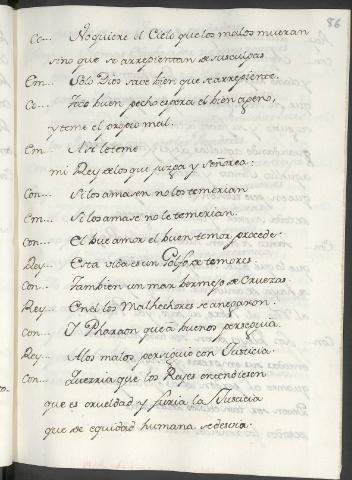 86
Co... No quiere el Cielo que los malos mueran
sino que se arrepientan de sus culpas
Em... Solo Dios save bien que se arrepiente.
Co... Todo buen pecho espera el bien ageno,
y teme el propio mal.
Em... Asi le teme
mi Rey de los que juzga y Señorea:
Con... Si los amasen no los temerian
Em... Si los amase no le temerian.
Con... El bue amor el buen temor procede.
Rey... Esta vida es un Golfo de temores.
Con... Tambien un mar bermejo de Cruezas
Rey... En el los Malhechores se anegaron.
Con... Y Pharaon que à buenos perseguia.
Rey... A los malos persiguio con Justicia.
Con... Querria que los Reyes entendiesen
que es crueldad y furia la Justicia
que de equidad humana se desvia.